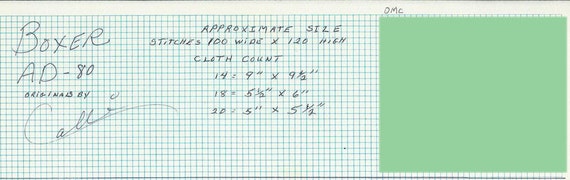 DMC
BOXER
AD-80
ORIGINALS BY
APPROXIMATE SIZE
STITCHES 100 WIDE X 120 HIGH
CLOTH COUNT
14 = 9" X 9 1/2"
18 = 5 1/2" X 6"
20 = 5" X 5 1/2"